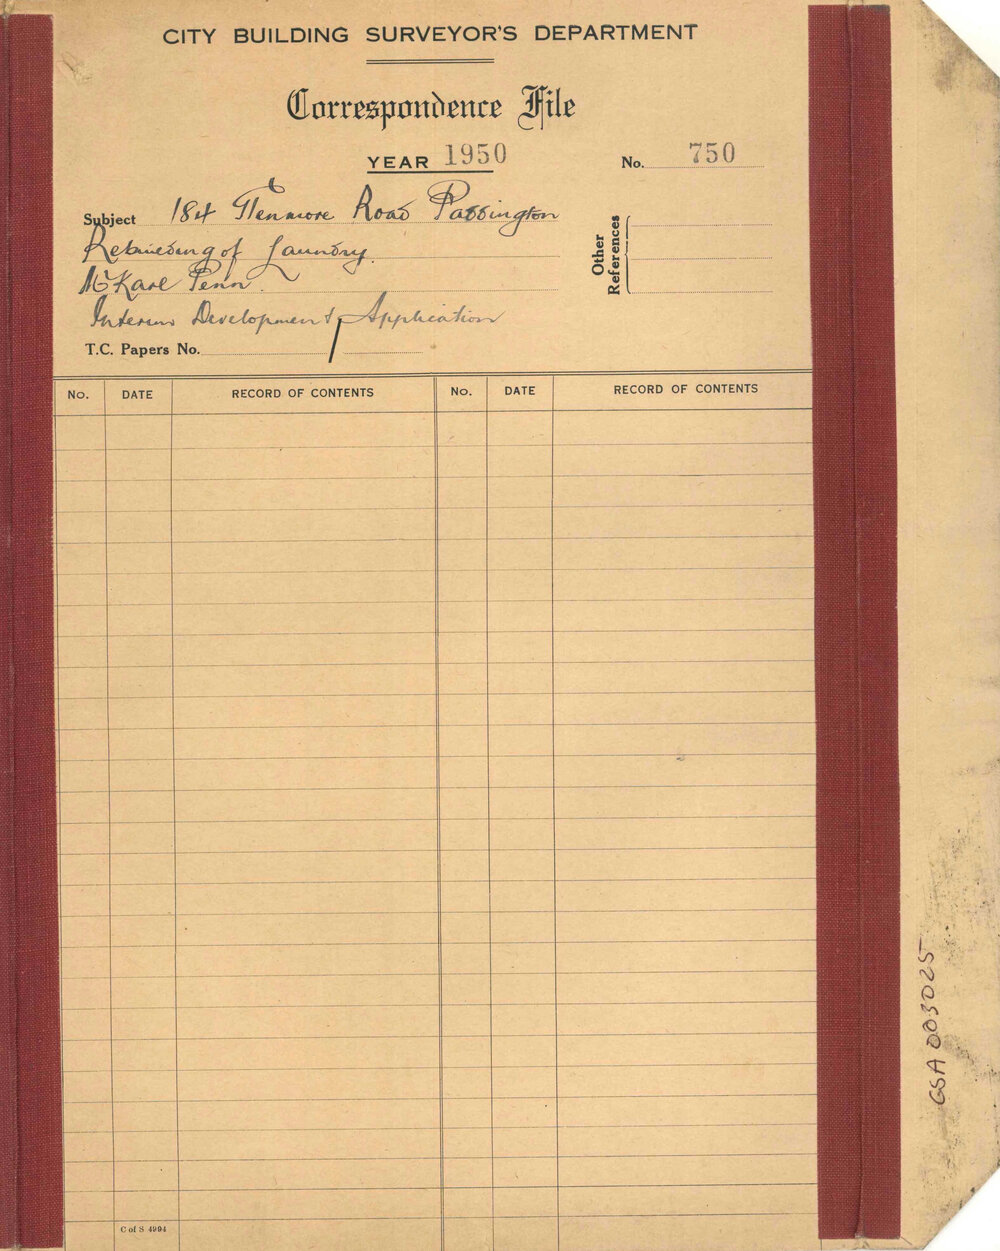 CITY BUILDING SURVEYOR'S DEPARTMENT
Correspondence File
YEAR 1950
No. 750
Subject 184 Glenmore Road Paddington
Rebuilding of Laundry.
Mr Karl Penn.
Interim Development Application
T.C. Papers No. /
Other References
No. DATE RECORD OF CONTENTS No. DATE RECORD OF CONTENTS
C of S 4994
GSA 003025